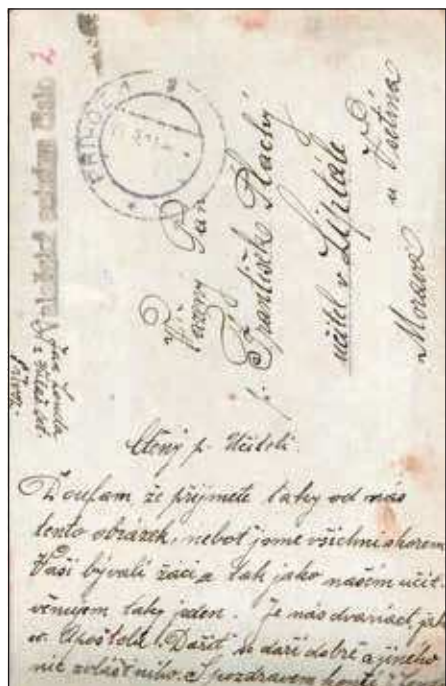 PŘÍBOR 1
Vážený Pan
František Plachý
učitel v Liptále
u Vsetína
Morava
Ctěný p. Učiteli.
Doufam že přijmete taky od nás
tento obrázek, neboť jsme všichni skorem
Vaši bývalí žáci a tak jako našim učit.
věnujem taky jeden. Je nás dvanáct jak
sv. Apoštolů. Dařit se daří dobře a jiného
nic zvláštního. S pozdravem končí